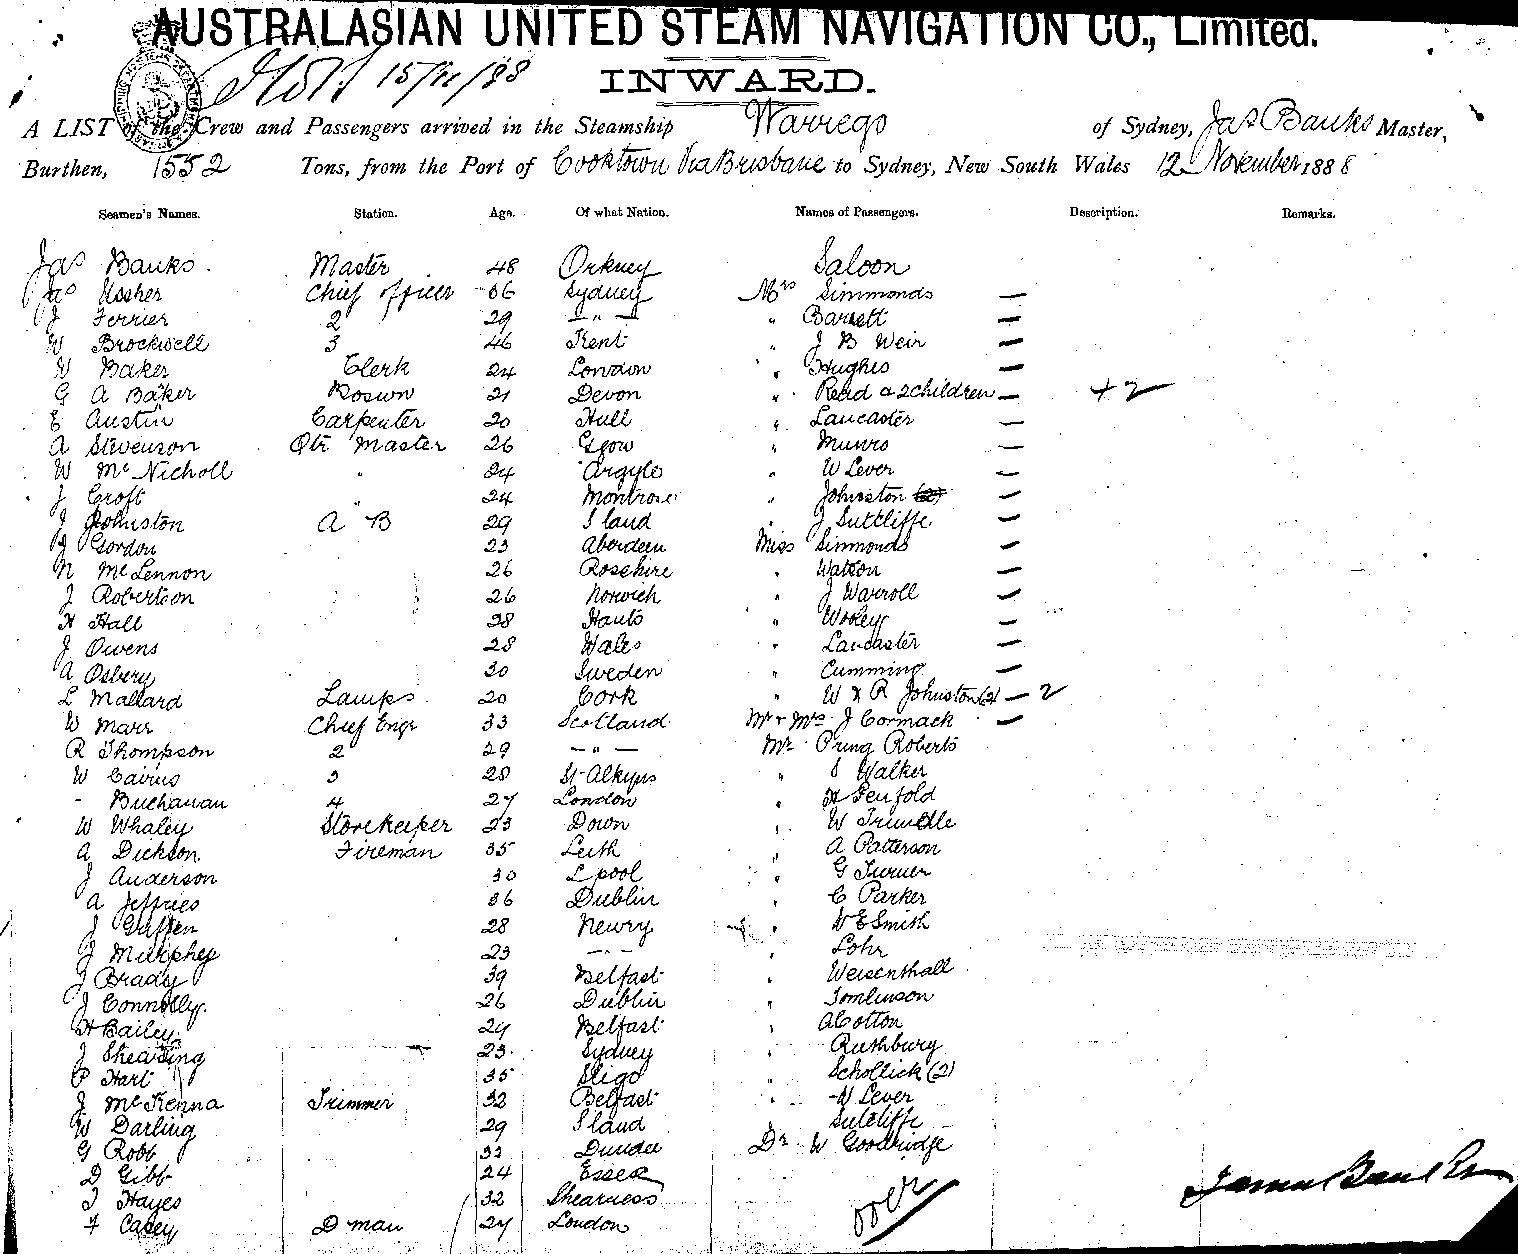 AUSTRALASIAN UNITED STEAM NAVIGATION CO., Limited.
15/11/88 INWARD.
A LIST of the Crew and Passengers arrived in the Steamship Warrego of Sydney, Jas Banks Master,
Burthen, 1552 Tons, from the Port of Cooktown Via Brisbane to Sydney, New South Wales 12 November 1888
Seamen's Names. Station. Age. Of what Nation. Names of Passengers. Description. Remarks.
Jas Banks. Master 48 Orkney Saloon
Jas Ussher Chief officer 36 Sydney Mrs Simmonds —
J Ferrier 2 29 — " — " Barrett —
W Brockwell 3 46 Kent " J B Weir —
W Baker Clerk 24 London " Hughes —
G A Baker Boswn 21 Devon " Read & 2 children — + 2
E Austin Carpenter 20 Hull " Lancaster —
A Stevenson Qtr Master 26 Ggow " Munro —
W McNicholl " 24 Argyle " W Lever —
J Croft " 24 Montrose " Johnston —
J Johnston A B 29 Sland " J Sutcliffe —
J Gordon 23 Aberdeen Miss Simmonds —
N McLennon 26 Rosshire " Watson —
J Robertson 26 Norwich " J Warroll —
H Hall 38 Hants " Wooley —
J Owens 28 Wales " Lancaster —
A Osbery 30 Sweden " Cumming —
L Mallard Lamps 20 Cork " W & R Johnston (2) — 2
W Marr Chief Engr 33 Scotland Mr & Mrs J Cormack —
R Thompson 2 29 — " — Mr Pring Roberts
W Cairns 3 28 " S Walker
- Buchanan 4 27 London " H Penfold
W Whaley Storekeeper 23 Down " W Trundle
A Dickson Fireman 35 Leith " A Patterson
J Anderson 30 Lpool " G Turner
A Jeffries 36 Dublin " C Parker
J Giffen 28 Newry " W E Smith
J Murphey 23 — " — " Lohr
J Brady 39 Belfast " Weisenthall
J Connolly. 26 Dublin " Tomlinson
H Bailey 24 Belfast " A Cotton
J Shearing 23 Sydney " Ruthbury
P Hart 35 Sligo " Schollick (2)
J McKenna Trimmer 32 Belfast " W Lever
W Darling 29 Sland Sutcliffe
G Robb 32 Dundee Dr W Goodridge
D Gibb 24 Essex
J Hayes 32 Shearness
F Casey D man 27 London
over
James Banks